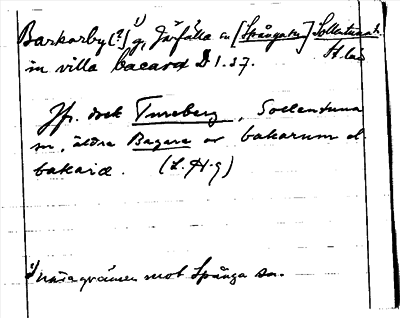 Barkarby(?) 1) g, Järfälla sn [Spånga sn] Sollentuna h.
in villa bacard D 1. 37. St. län
Jfr. dock Tureberg, Sollentuna
sn, äldre Bagare av bakarum el
bakare. (L. H-g)
1) nära gränsen mot Spånga sn.